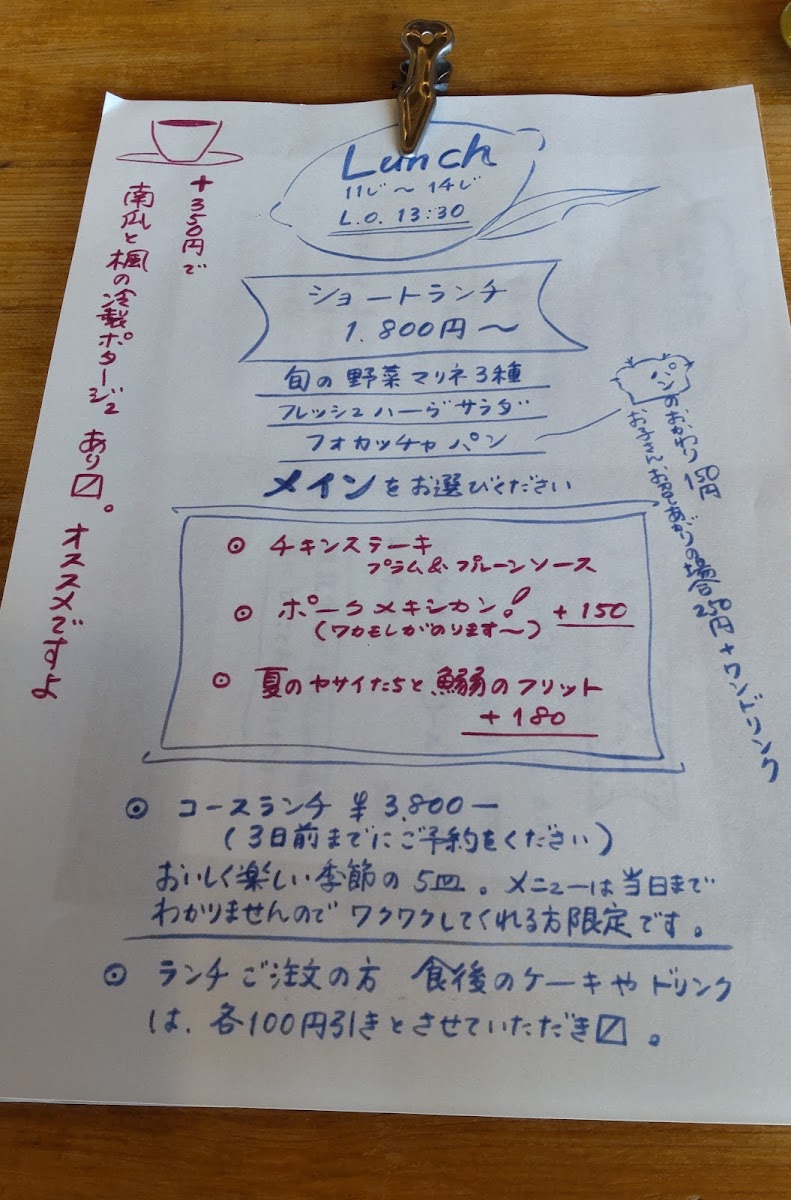 Lunch
11じ〜14じ
L.O. 13:30
ショートランチ
1.800円〜
旬の野菜マリネ3種
フレッシュハーブサラダ
フォカッチャパン
パンのおかわり 150円
お子さんお召しあがりの場合250円+ワンドリンク
メインをお選びください
⊙ チキンステーキ
プラム&プルーンソース
⊙ ポークメキシカン! +150
(ワカモレがのります〜)
⊙ 夏のヤサイたちと鰯のフリット
+180
+350円で
南瓜と楓の冷製ポタージュ あり〼。オススメですよ
⊙ コースランチ ¥3,800ー
(3日前までにご予約をください)
おいしく楽しい季節の5皿。メニューは当日まで
わかりませんのでワクワクしてくれる方限定です。
⊙ ランチご注文の方 食後のケーキやドリンク
は、各100円引きとさせていただき〼。